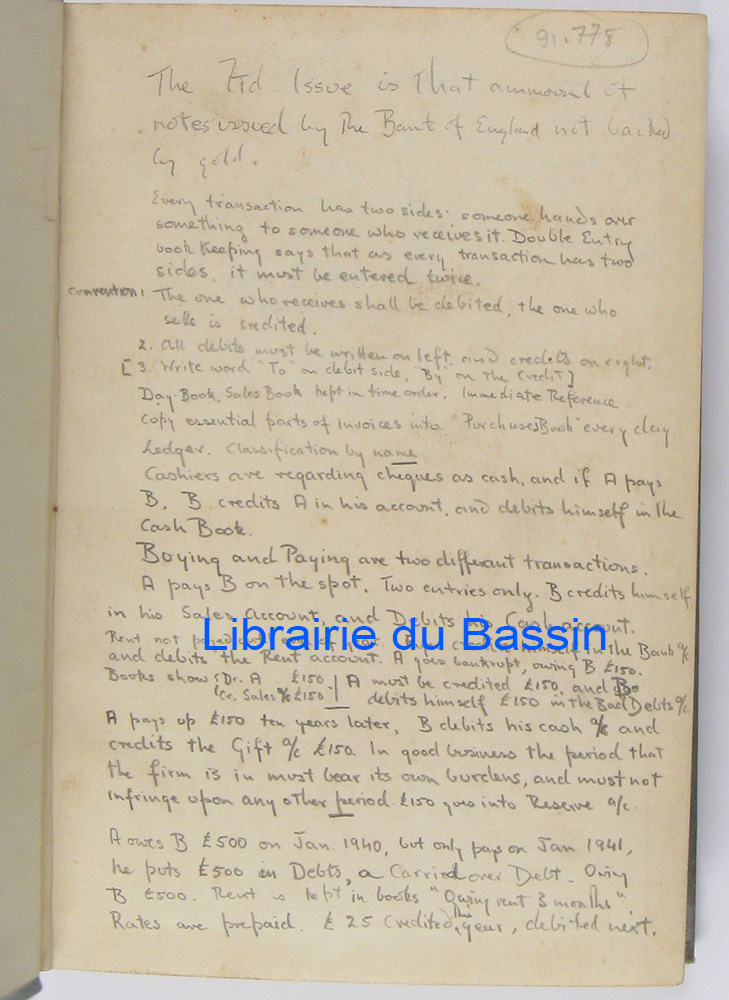 91.778
The Fid. Issue is That ammount of
notes issued by The Bank of England not backed
by gold.
Every transaction has two sides: someone hands over
something to someone who receives it. Double Entry
book Keeping says that as every transaction has two
sides, it must be entered twice.
Convention 1. The one who receives shall be debited, the one who
sells is credited.
2. All debits must be written on left, and credits on right.
[3. Write word "To" on debit side, "By" on The Credit]
Day-Book, Sales Book kept in time order. Immediate Reference
Copy essential parts of Invoices into "Purchases Book" every day
Ledger. Classification by name
Cashiers are regarding cheques as cash, and if A pays
B, B credits A in his account, and debits himself in the
Cash Book.
Buying and Paying are two different transactions.
A pays B on the spot. Two entries only. B credits himself
in his Sales Account, and Debits his Cash account.
Librairie du Bassin
Rent not himself in the Bank a/c
and debits the Rent account. A goes bankrupt, owing B £150.
Books show: Dr. A £150 A must be credited £150, and B
Cr. Sales a/c £150 debits himself £150 in the Bad Debts a/c.
A pays up £150 ten years later, B debits his cash a/c and
credits the Gift a/c £150. In good business the period that
the firm is in must bear its own burdens, and must not
infringe upon any other period. £150 goes into Reserve a/c.
A owes B £500 on Jan. 1940, but only pays on Jan 1941,
he puts £500 in Debts, a Carried over Debt. Owing
B £500. Rent is kept in books "Owing rent 3 months".
Rates are prepaid. £25 Credited this year, debited next.